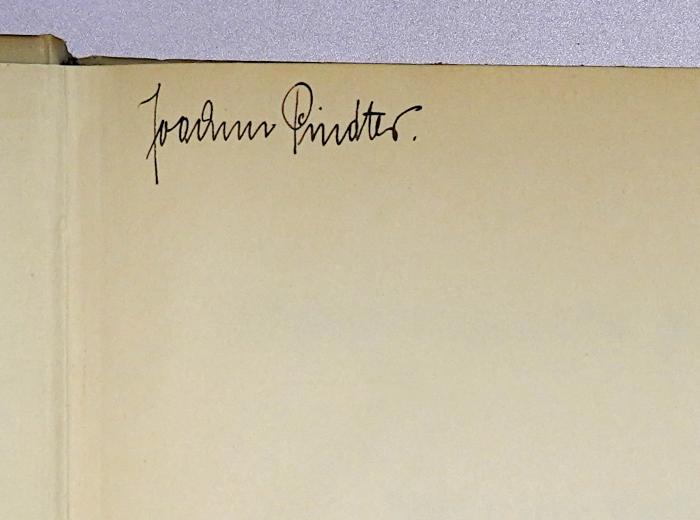 Joachim Pindter.